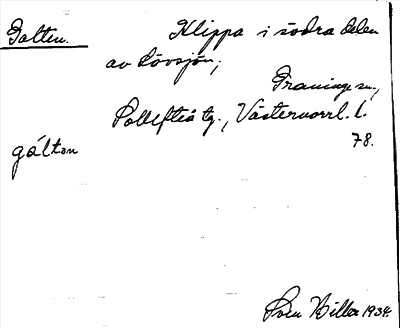 Galten. Klippa i södra delen
av Lövsjön;
Graninge sn.,
Sollefteå tg., Västernorrl. l.
78.
gálton
Sven Billa 1934.